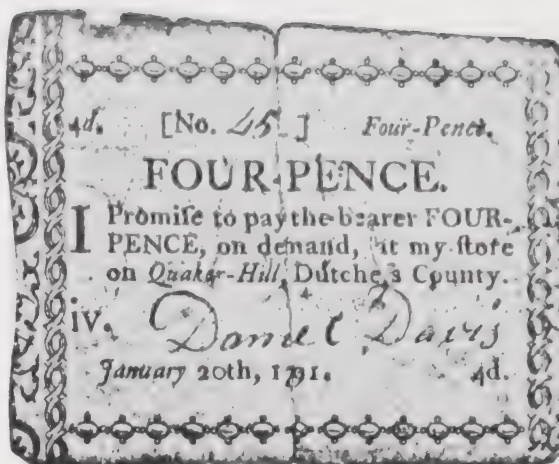 4d. [No. 45.] Four-Pence.
FOUR-PENCE.
I Promiſe to pay the bearer FOUR-
PENCE, on demand, at my ſtore
on Quaker-Hill, Dutcheſs County.
iv. Daniel Davis
January 20th, 1791. 4d.